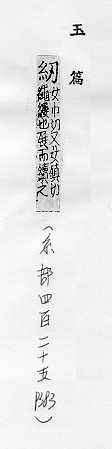 玉篇
紉 女巾切又女鎮切
繩縷也展而續之
（糸部四百二十五 P383）